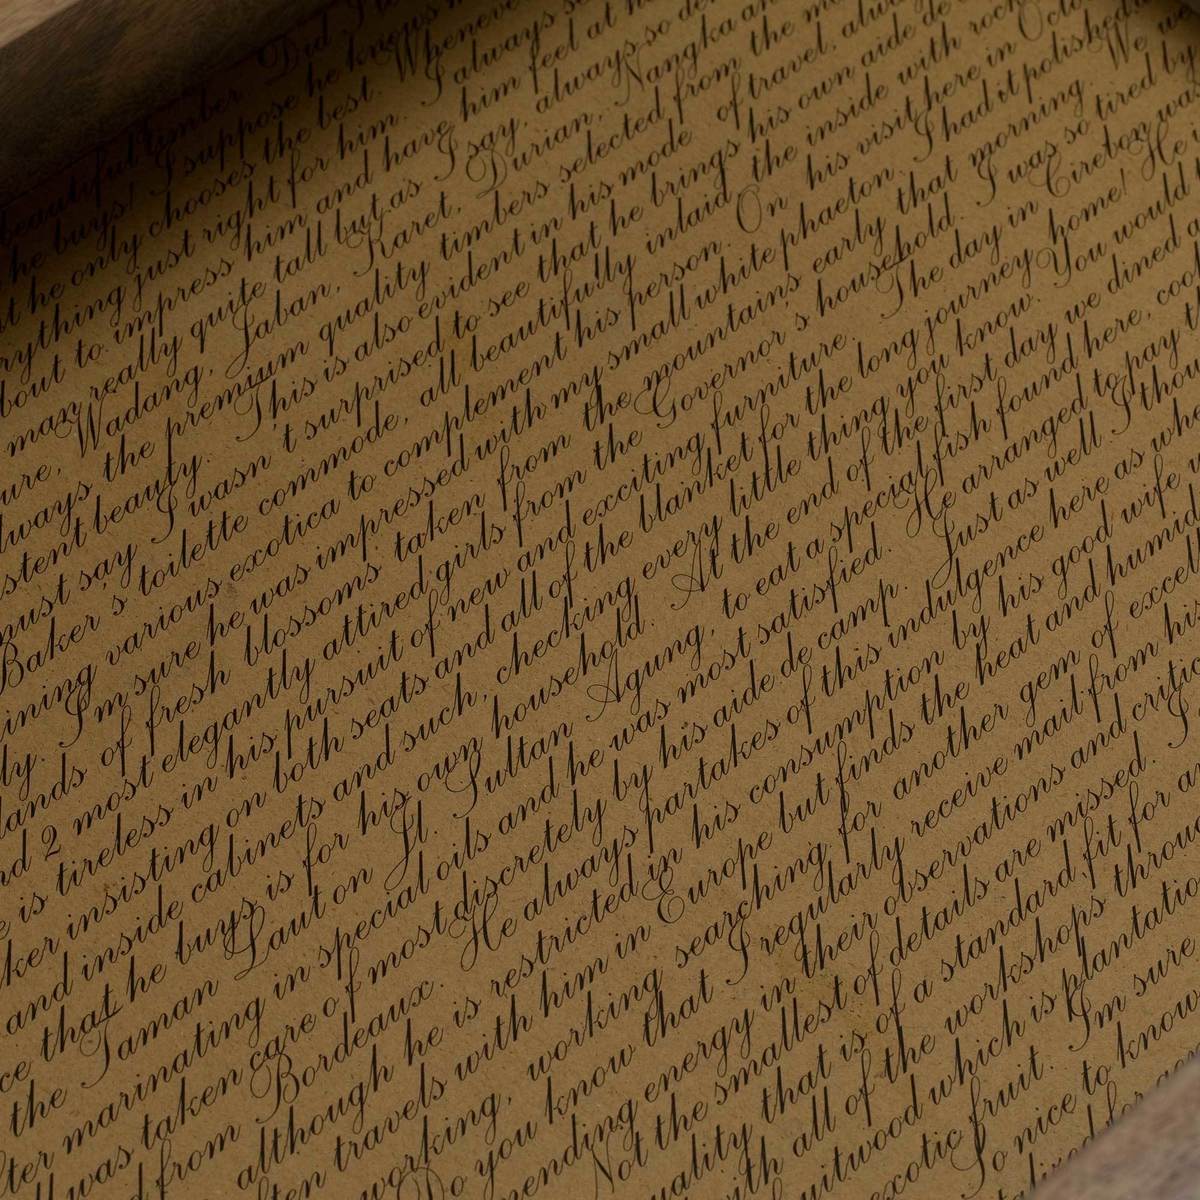 beautiful timber. Did I
he buys! I suppose he knows m
t he only chooses the best. Wheneve
rything just right for him. I always s
bout to impress him and have him feel at h
man really quite tall but as I say, always so de
ure, Wadang, Jaban, Raret, Durian, Nangka an
lways the premium quality timbers selected from the m
stent beauty. This is also evident in his mode of travel, alw
must say I wasn't surprised to see that he brings his own aide de
Baker's toilette commode, all beautifully inlaid, the inside with rock
ining various exotica to complement his person. On his visit here in Octo
ly. I'm sure he was impressed with my small white phaeton. I had it polished a
lands of fresh blossoms taken from the mountains early that morning. We w
nd 2 most elegantly attired girls from the Governor's household. I was so tired by
e is tireless in his pursuit of new and exciting furniture. The day in Cirebon was
ker insisting on both seats and all of the blanket for the long journey home! He
and inside cabinets and such, checking every little thing you know. You would t
ce that he buys is for his own household. At the end of the first day we dined a
the Taman Laut on Jl. Sultan Agung, to eat a special fish found here, coo
fter marinating in special oils and he was most satisfied. He arranged to pay t
ll was taken care of most discretely by his aide de camp. Just as well I thou
d from Bordeaux. He always partakes of this indulgence here as whe
although he is restricted in his consumption by his good wife w
ten travels with him in Europe but finds the heat and humid
working, working searching for another gem of excell
Do you know that I regularly receive mail from his
mending energy in their observations and critic
Not the smallest of details are missed. I
uality that is of a standard, fit for a
th all of the workshops throug
uitwood which is plantatio
exotic fruit. I'm sure
So nice to know